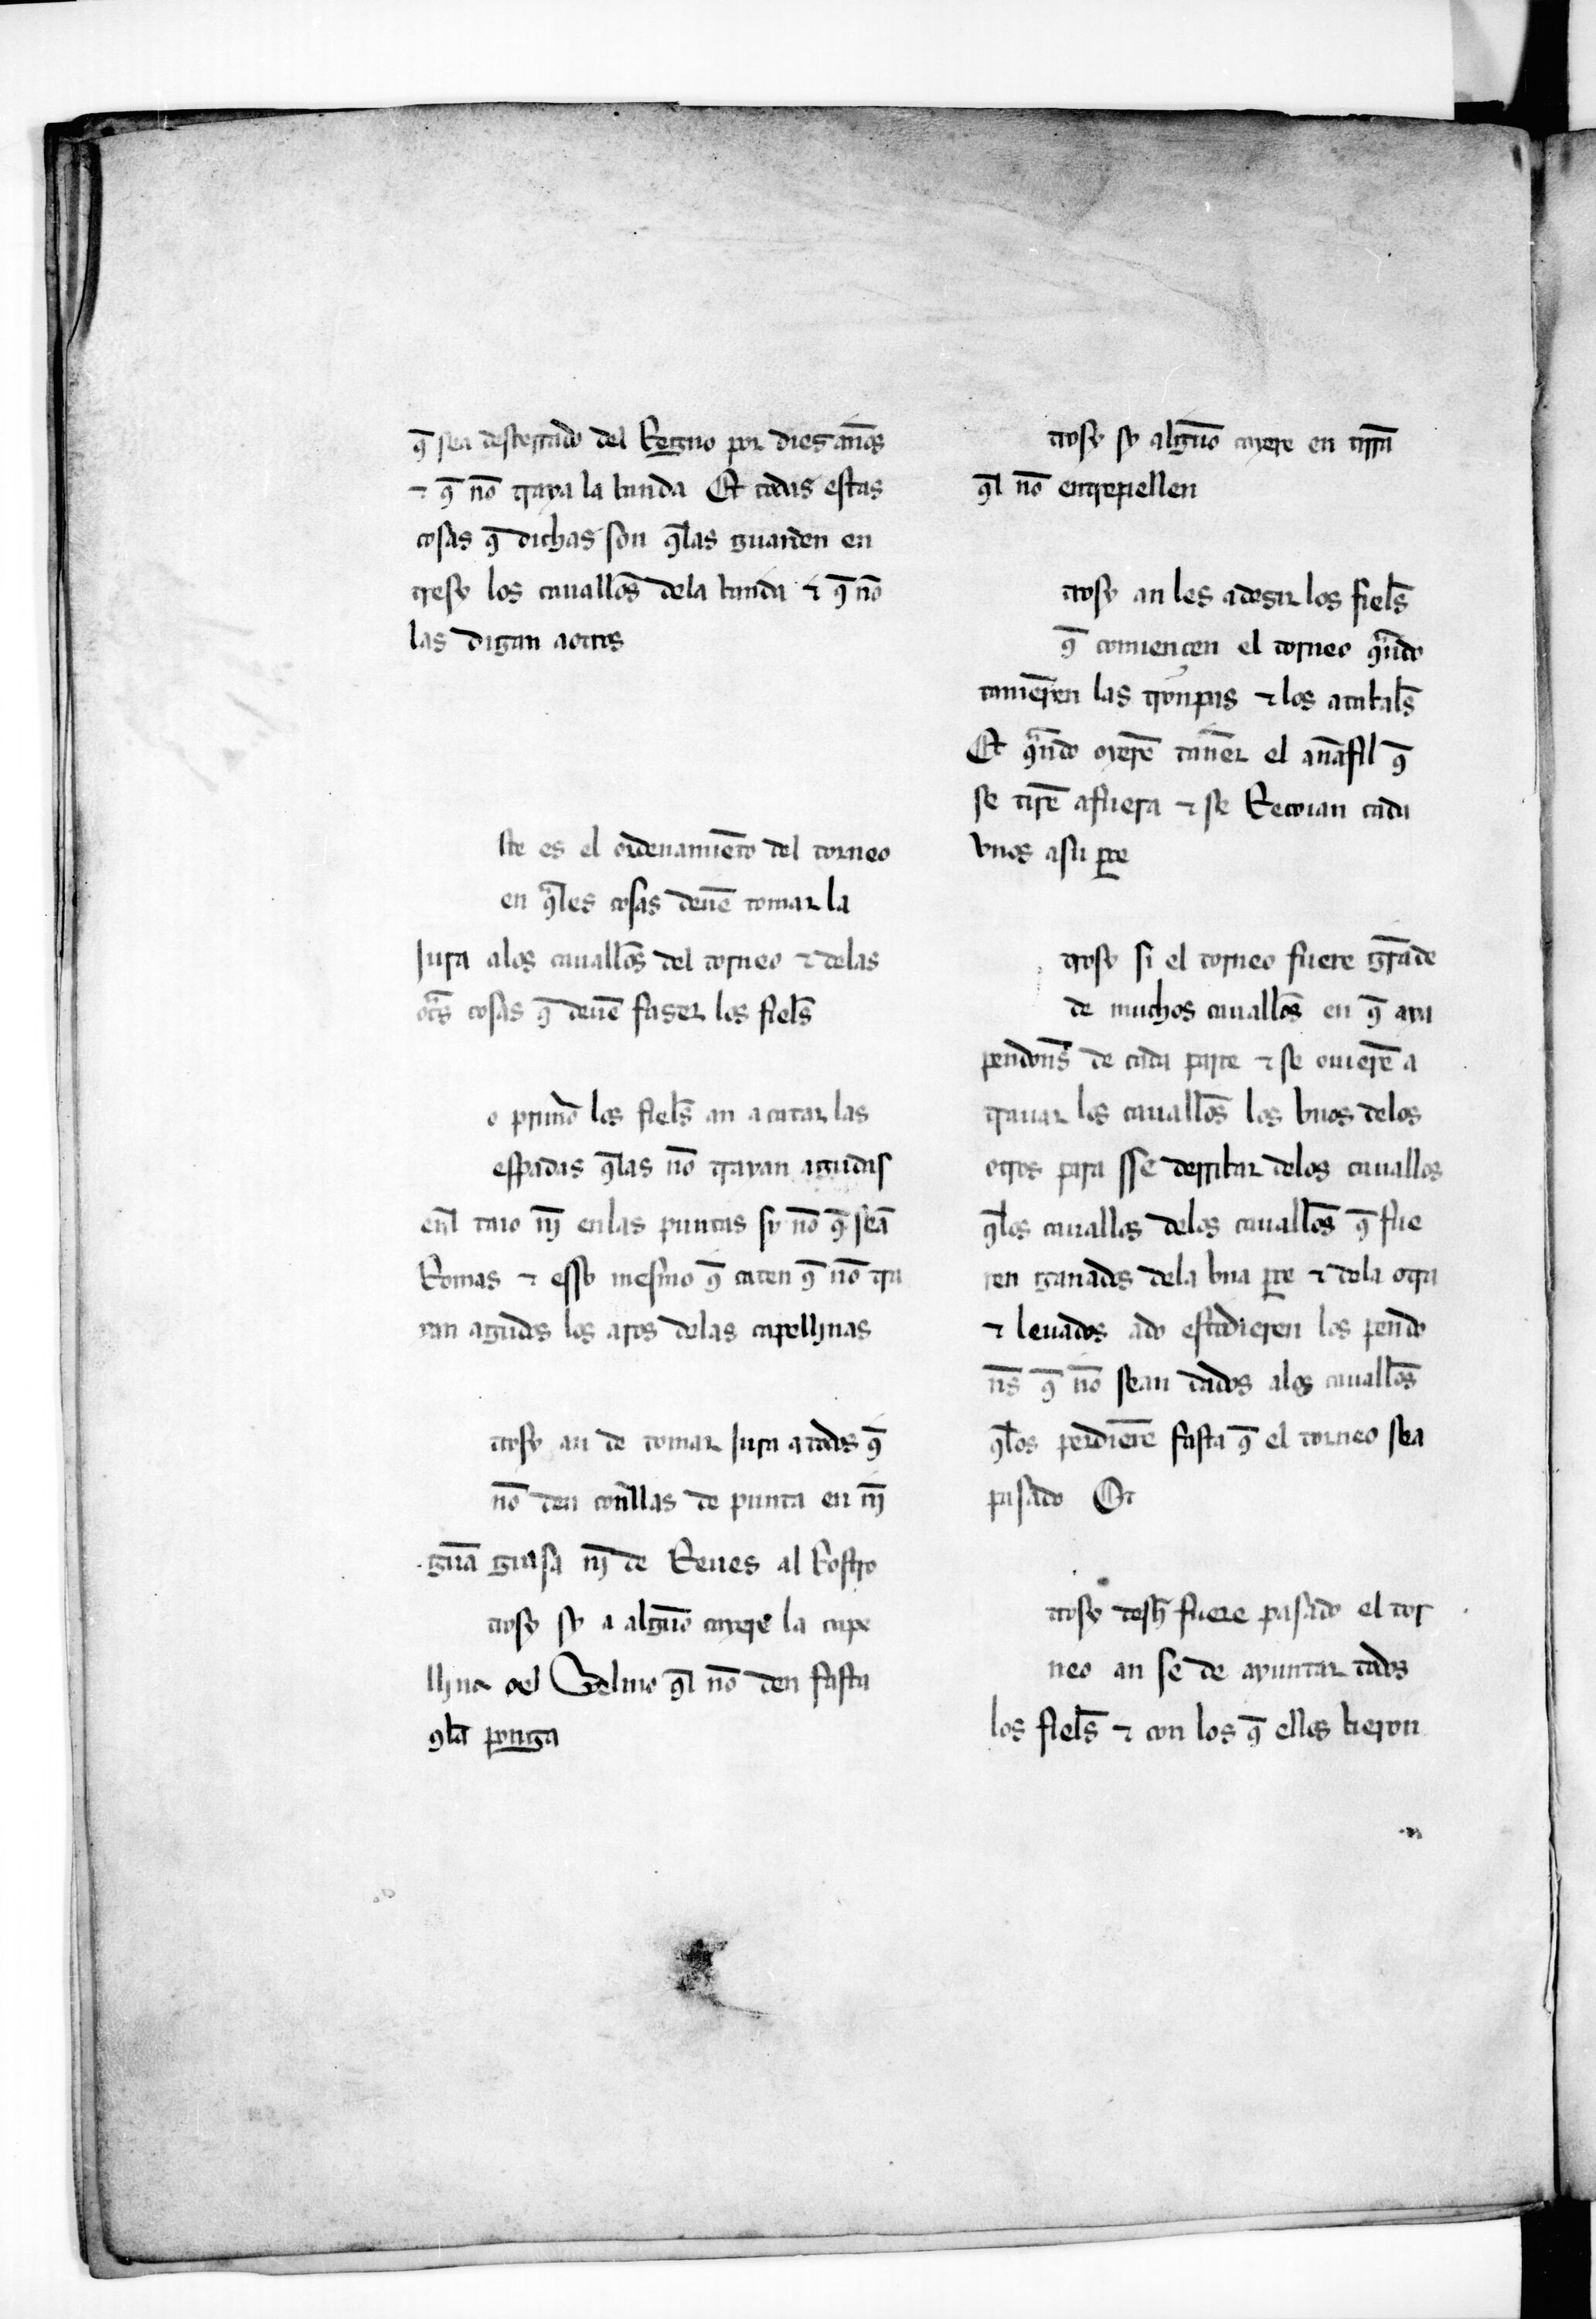 q̄ sea desterrado del Regno por dies an̄os
⁊ q̄ nō traya la banda Et todas estas
cosas q̄ dichas son q̄las guarden en
tresy los cauallōs dela banda ⁊ q̄ nō
las digan aotros
ste es el ordenamiēto del torneo
en q̄les cosas deuē tomar la
jura alos cauallōs del torneo ⁊ delas
ot̄s cosas q̄ deuē faser los fiel̄s
o prim̄o los fiel̄s an acatar las
espadas q̄las nō trayan agudas
en̄l tajo nj̄ enlas puntas sy nō q̄ seā
Romas ⁊ esso mesmo q̄ caten q̄ nō tra
yan agudos los aros delas capellinas
trosy an de tomar jura atodos q̄
nō den con̄llas de punta en nj̄
gūa guisa nj̄ de Reues al Rostro
trosy sy a algūo cayere la cape
llina oel Gelmo q̄l nō den fasta
q̄la ponga
trosy sy algūo cayere en tirrā
q̄l nō entrepellen
trosy an les adesir los fiel̄s
q̄ comiençen el torneo q̄ndo
tanierēn las tronpas ⁊ los atabal̄s
Et q̄ndo oyerē tan̄er el an̄afil q̄
se tirē afuera ⁊ se Recoian cada
vnos asu p̄te
trosy si el torneo fuere grāde
de muchos cauallōs en q̄ aya
pendon̄s de cada parte ⁊ se ouierē a
trauar los cauallōs los vnos delos
otros para sse derribar delos cauallos
q̄los cauallos delos cauallōs q̄ fue
ren ganados dela vna p̄te ⁊ dela otra
⁊ leuados ado estodieren los pendo
n̄s q̄ nō sean dados alos cauallōs
q̄los perdierē fasta q̄ el torneo sea
pasado Ot
trosy desq̄ fuere pasado el tor
neo an se de ayuntar todos
los fiel̄s ⁊ con los q̄ ellos bieron